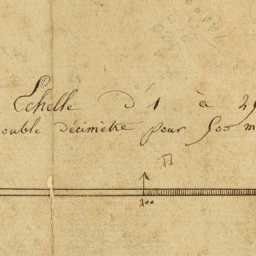 Echelle d'1 à 25
ouble décimètre pour 500 m
100